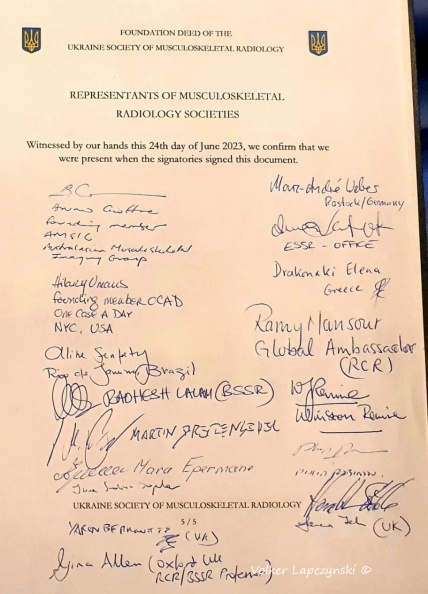 FOUNDATION DEED OF THE
UKRAINE SOCIETY OF MUSCULOSKELETAL RADIOLOGY
REPRESENTANTS OF MUSCULOSKELETAL
RADIOLOGY SOCIETIES
Witnessed by our hands this 24th day of June 2023, we confirm that we
were present when the signatories signed this document.
founding member
AMSIG
Australasian Musculoskeletal
Imaging Group
Hilary Umans
founding member OCAD
ONE CASE A DAY
NYC, USA
Rio de Janeiro Brazil
RADHESH LALAM (BSSR)
MARTIN
Mara Epermane
Marc-André Weber
Rostock/Germany
ESSR - OFFICE
Drakonaki Elena
Greece
Ramy Mansour
Global Ambassador
(RCR)
Winston Rennie
PHILIP ROBINSON
(UK)
UKRAINE SOCIETY OF MUSCULOSKELETAL RADIOLOGY
5/5
(UA)
Gina Allen (Oxford UK
RCR/BSSR
Volker Lapczynski ®